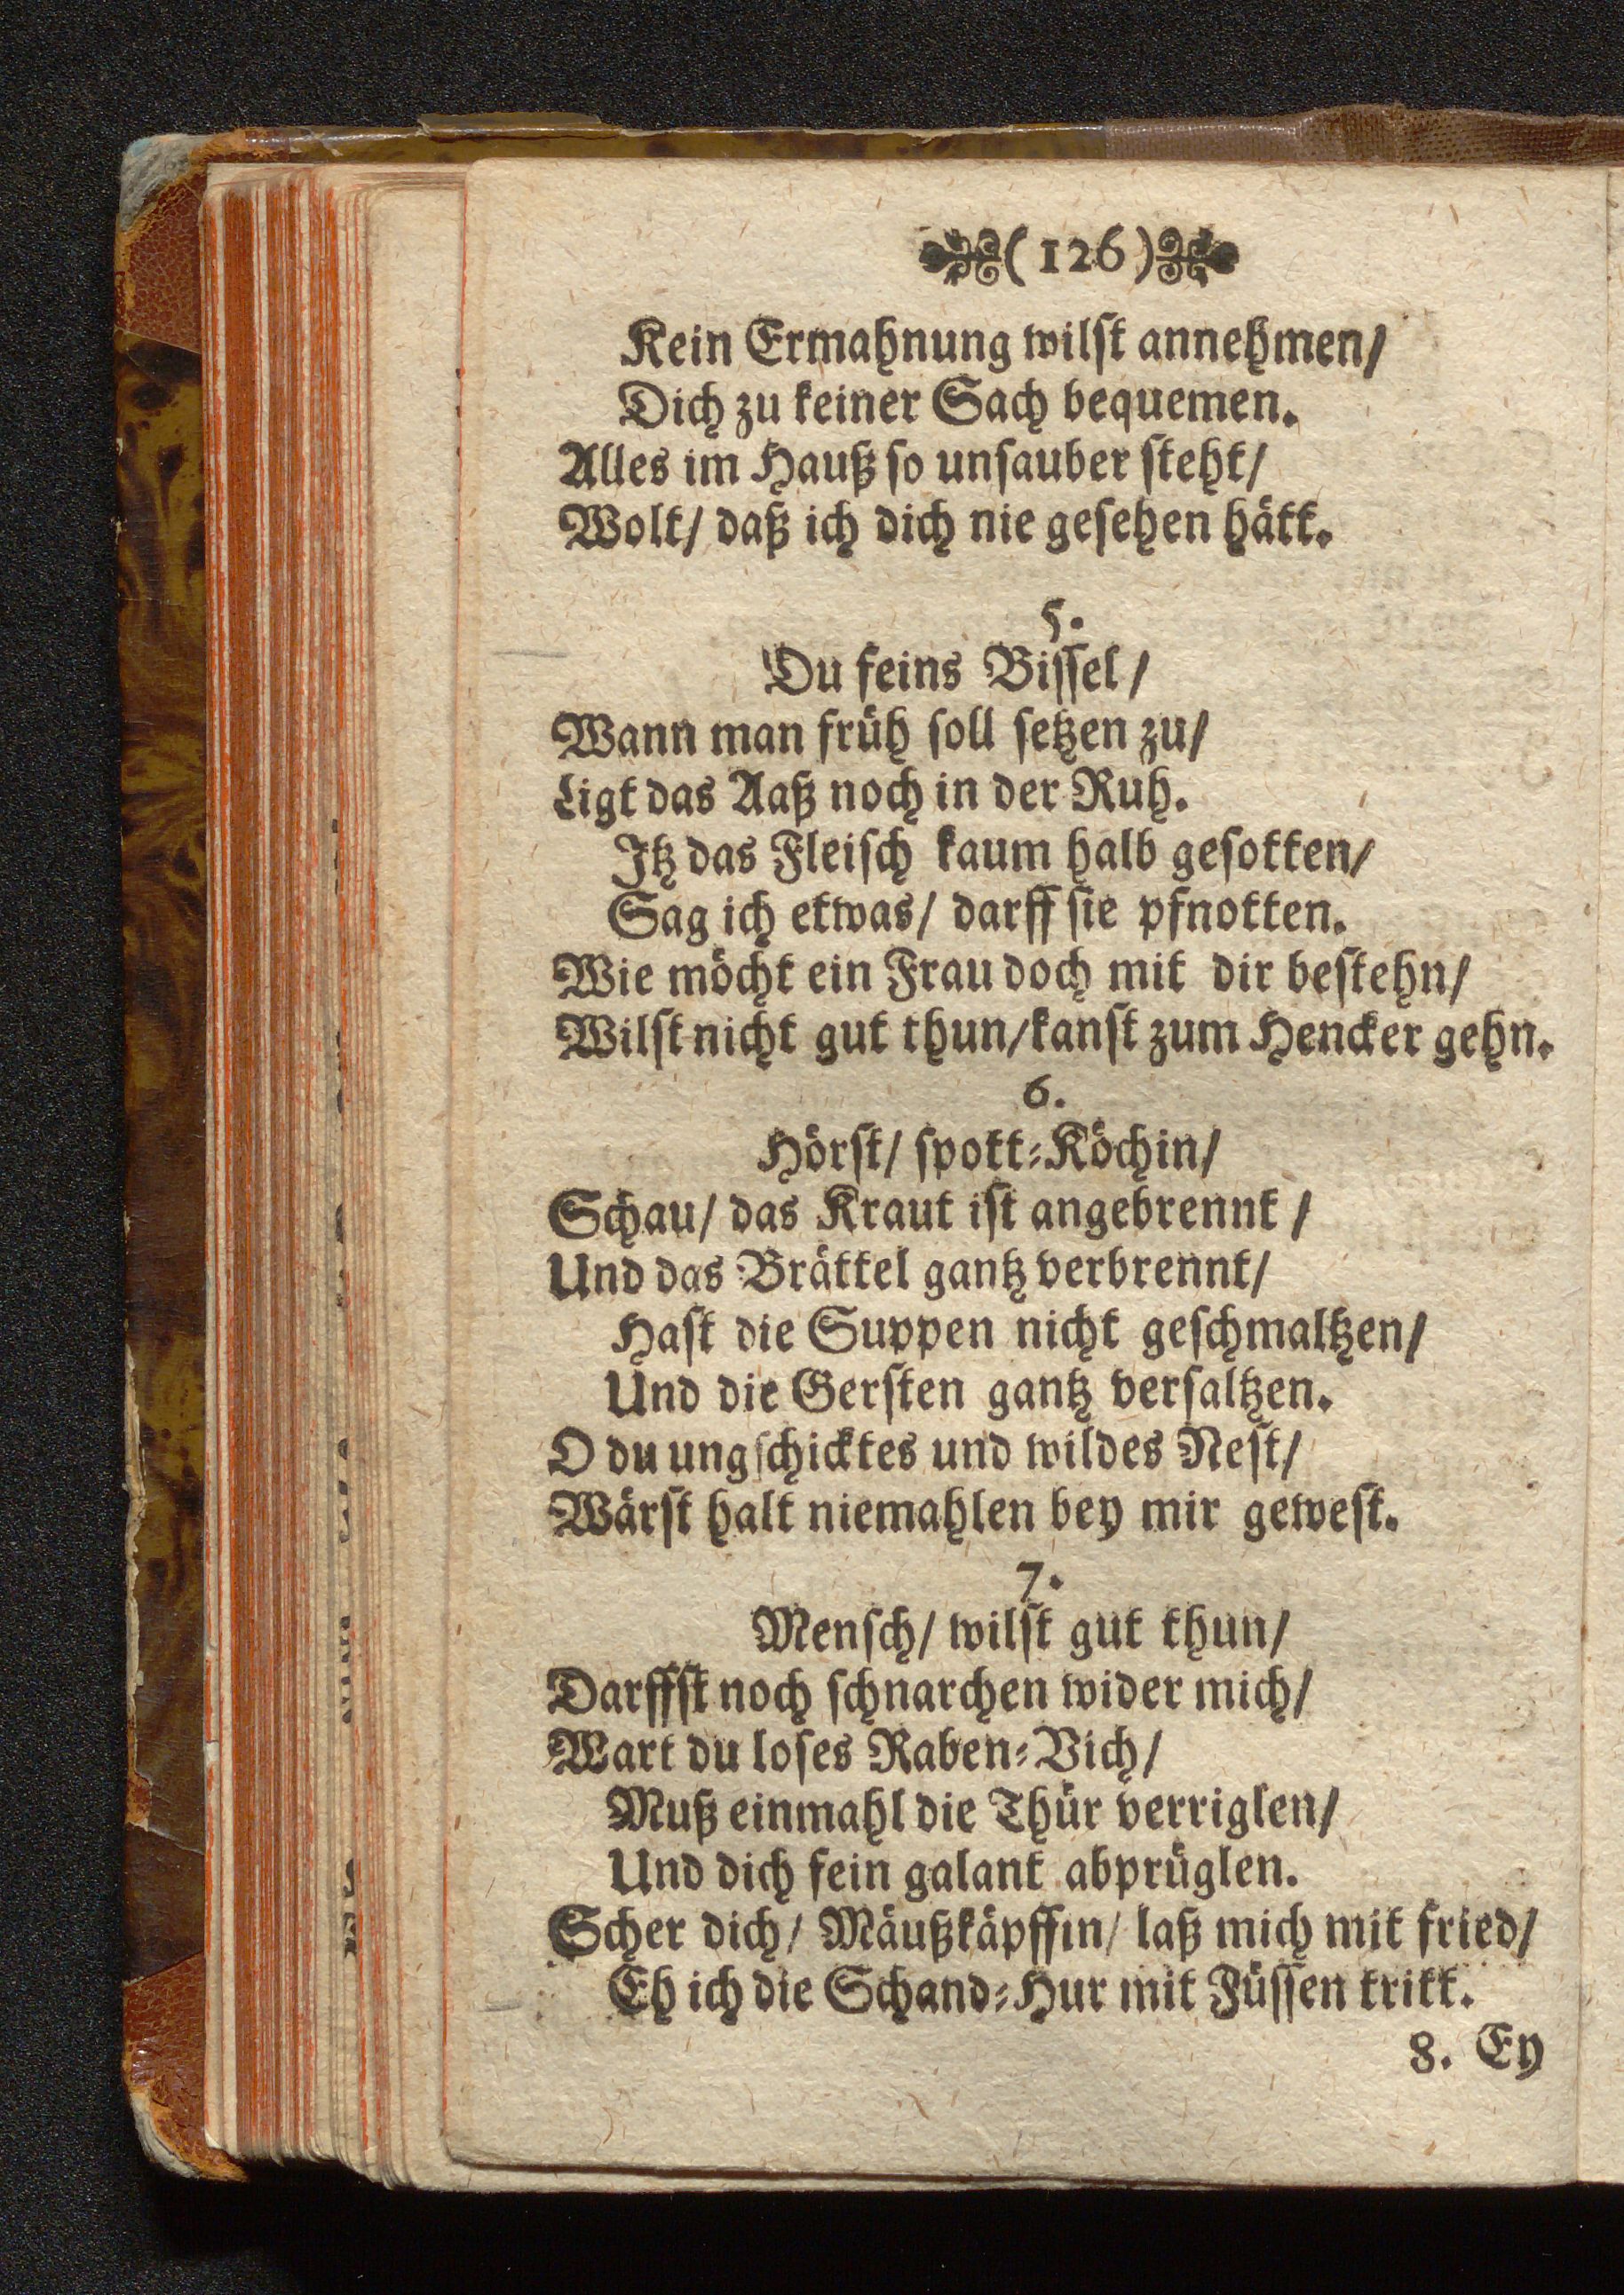 (126)
Kein Ermahnung wilſt annehmen/
Dich zu keiner Sach bequemen.
Alles im Hauß ſo unſauber ſteht/
Wolt/ daß ich dich nie geſehen hätt.
5.
Du feins Biſſel/
Wann man früh ſoll ſetzen zu/
Ligt das Aaß noch in der Ruh.
Itz das Fleiſch kaum halb geſotten/
Sag ich etwas/ darff ſie pfnotten.
Wie möcht ein Frau doch mit dir beſtehn/
Wilſt nicht gut thun/ kanſt zum Hencker gehn.
6.
Hörſt/ ſpott-Köchin/
Schau/ das Kraut iſt angebrennt/
Und das Brättel gantz verbrennt/
Haſt die Suppen nicht geſchmaltzen/
Und die Gerſten gantz verſaltzen.
O du ungſchicktes und wildes Neſt/
Wärſt halt niemahlen bey mir geweſt.
7.
Menſch/ wilſt gut thun/
Darffſt noch ſchnarchen wider mich/
Wart du loſes Raben-Vich/
Muß einmahl die Thür verriglen/
Und dich fein galant abprüglen.
Scher dich/ Mäußkäpffin/ laß mich mit fried/
Eh ich die Schand-Hur mit Füſſen tritt.
8. Ey